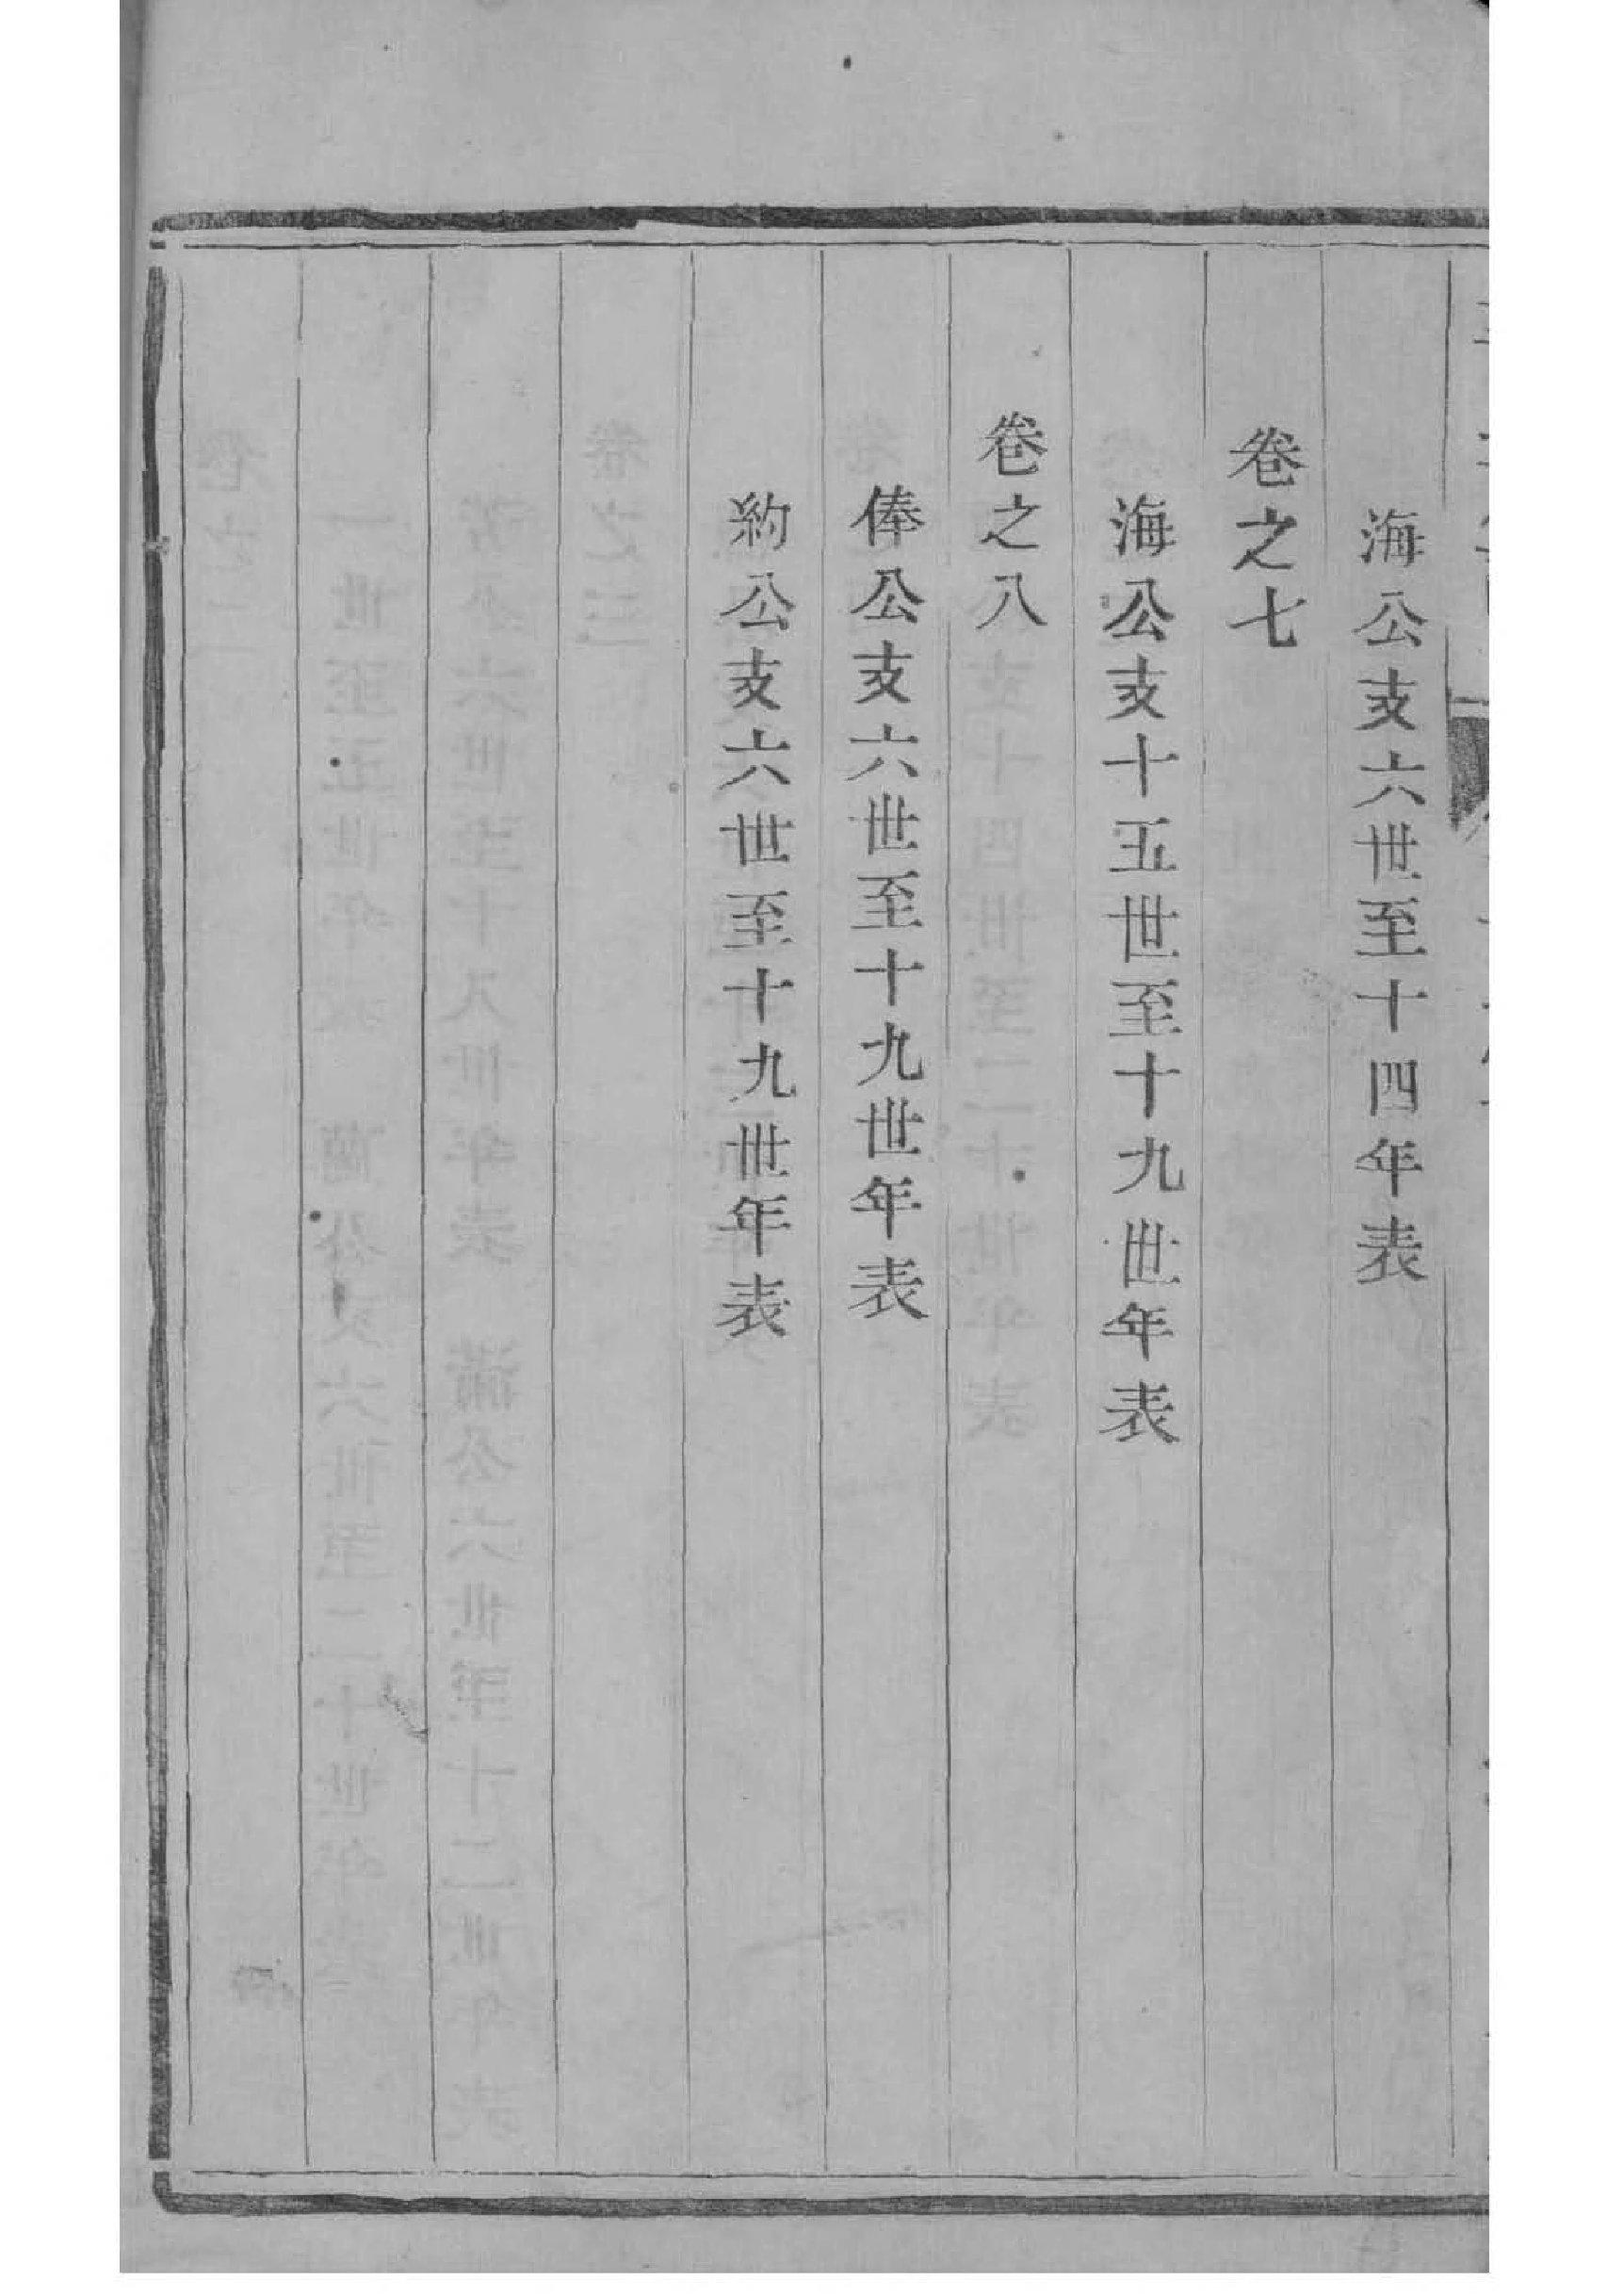 海公支六世至十四年表
卷之七
海公支十五世至十九世年表
卷之八
俸公支六世至十九世年表
約公支六世至十九世年表